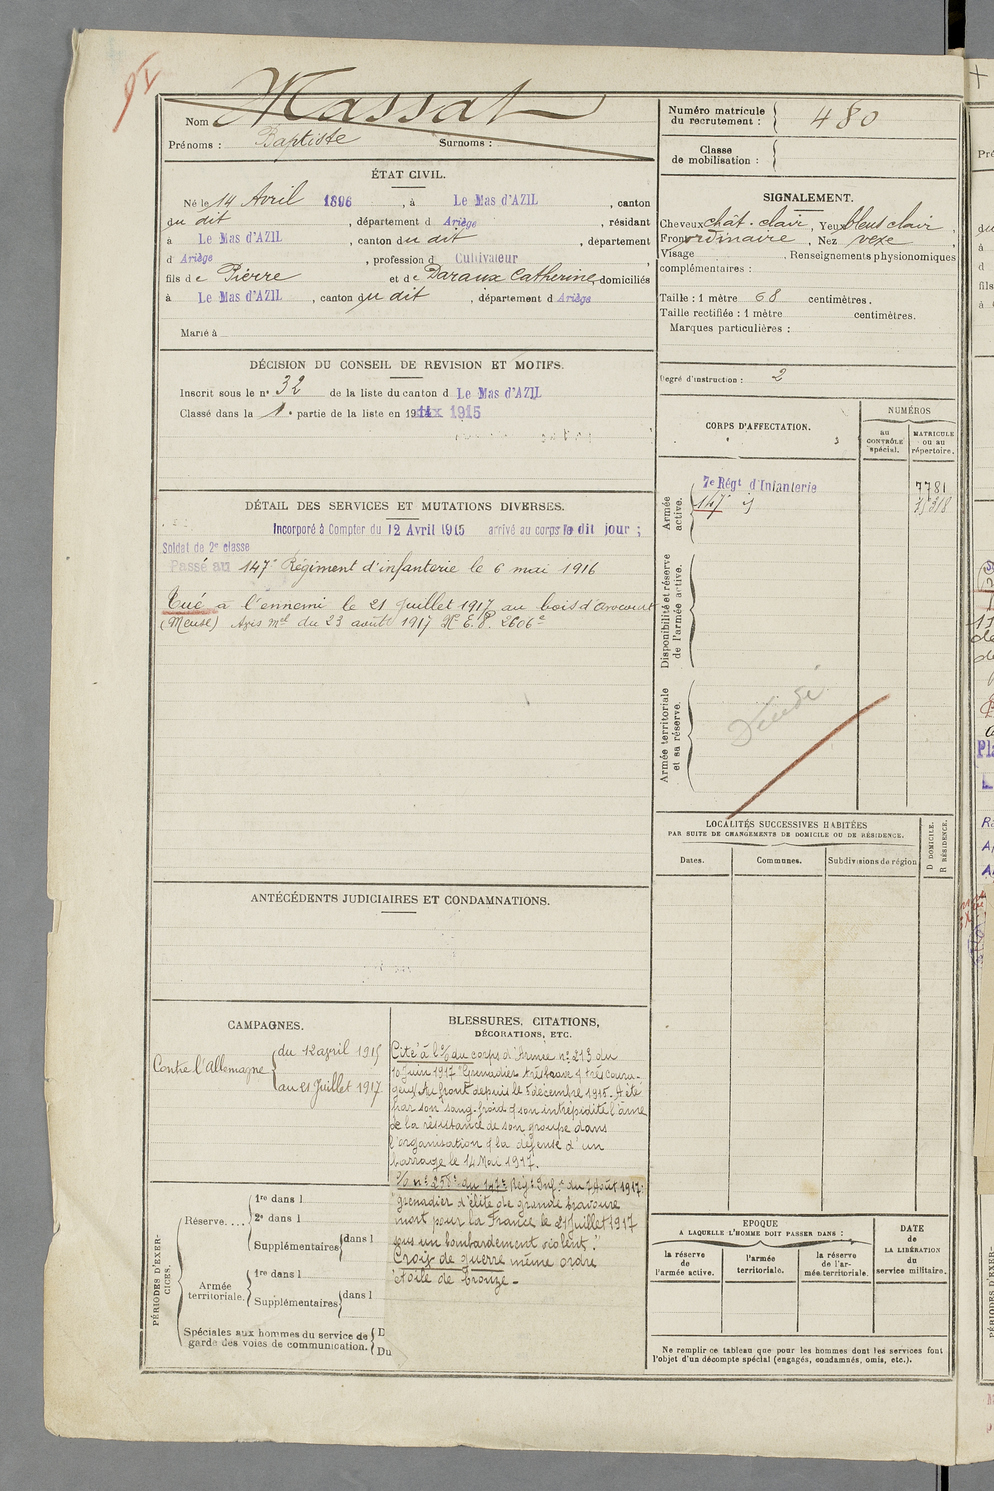 Nom Massat
Prénoms : Baptiste Surnoms :
Numéro matricule
du recrutement : 480
Classe
de mobilisation :
ÉTAT CIVIL.
Né le 14 Avril 1896, à Le Mas d'AZIL, canton
du dit, département d Ariège, résidant
à Le Mas d'AZIL, canton du dit, département
d Ariège, profession d Cultivateur
fils de Pierre et de Daraux Catherine, domiciliés
à Le Mas d'AZIL, canton du dit, département d Ariège
Marié à
SIGNALEMENT.
Cheveux chât. clair, Yeux bleus clair,
Front ordinaire, Nez vexe
Visage . Renseignements physionomiques
complémentaires :
Taille : 1 mètre 68 centimètres.
Taille rectifiée : 1 mètre centimètres.
Marques particulières :
Degré d'instruction : 2
DÉCISION DU CONSEIL DE REVISION ET MOTIFS.
Inscrit sous le nº 32 de la liste du canton d Le Mas d'AZIL
Classé dans la 1e partie de la liste en 19 1915
CORPS D'AFFECTATION.
NUMÉROS
au
CONTRÔLE
spécial.
MATRICULE
ou au
répertoire.
Armée
active.
7e Régt d'Infanterie 7781
147e
Disponibilité et réserve
de l'armée active.
Armée territoriale
et sa réserve.
DÉTAIL DES SERVICES ET MUTATIONS DIVERSES.
Incorporé à Compter du 12 Avril 1915 arrivé au corps le dit jour ;
Soldat de 2e classe
Passé au 147e Régiment d'infanterie le 6 mai 1916
Tué à l'ennemi le 21 Juillet 1917 au bois d'avocourt
(Meuse) Avis mel du 23 août 1917 Nº E.P. 2606e
LOCALITÉS SUCCESSIVES HABITÉES
PAR SUITE DE CHANGEMENTS DE DOMICILE OU DE RÉSIDENCE.
Dates.
Communes.
Subdivisions de région
D DOMICILE.
R RÉSIDENCE.
ANTÉCÉDENTS JUDICIAIRES ET CONDAMNATIONS.
CAMPAGNES.
Contre l'Allemagne
du 12 april 1915
au 21 Juillet 1917
BLESSURES, CITATIONS,
DÉCORATIONS, ETC.
Cité à l'o/ du corps d'Armée nº 213 du
10 Juin 1917 "Grenadier très brave & très coura-
geux Au front depuis le 5 décembre 1915. A été
par son sang-froid & son intrépidité l'âme
de la résistance de son groupe dans
l'organisation & la défense d'un
barrage le 14 Mai 1917.
o/ nº 258 du 147e Rég: Inf.e du 7 Août 1917:
"grenadier d'élite de grande bravoure
mort pour la France le 21 Juillet 1917
sous un bombardement violent."
Croix de guerre même ordre
étoile de bronze -
PÉRIODES D'EXER-
CICES.
Réserve....
1re dans l
2e dans l
Supplémentaires dans l
Armée
territoriale.
1re dans l
Supplémentaires dans l
Spéciales aux hommes du service de
garde des voies de communication.
D
Du
EPOQUE
A LAQUELLE L'HOMME DOIT PASSER DANS :
la réserve
de
l'armée active.
l'armée
territoriale.
la réserve
de l'ar-
mée territoriale.
DATE
de
LA LIBÉRATION
du
service militaire.
Ne remplir ce tableau que pour les hommes dont les services font
l'objet d'un décompte spécial (engagés, condamnés, omis, etc.).